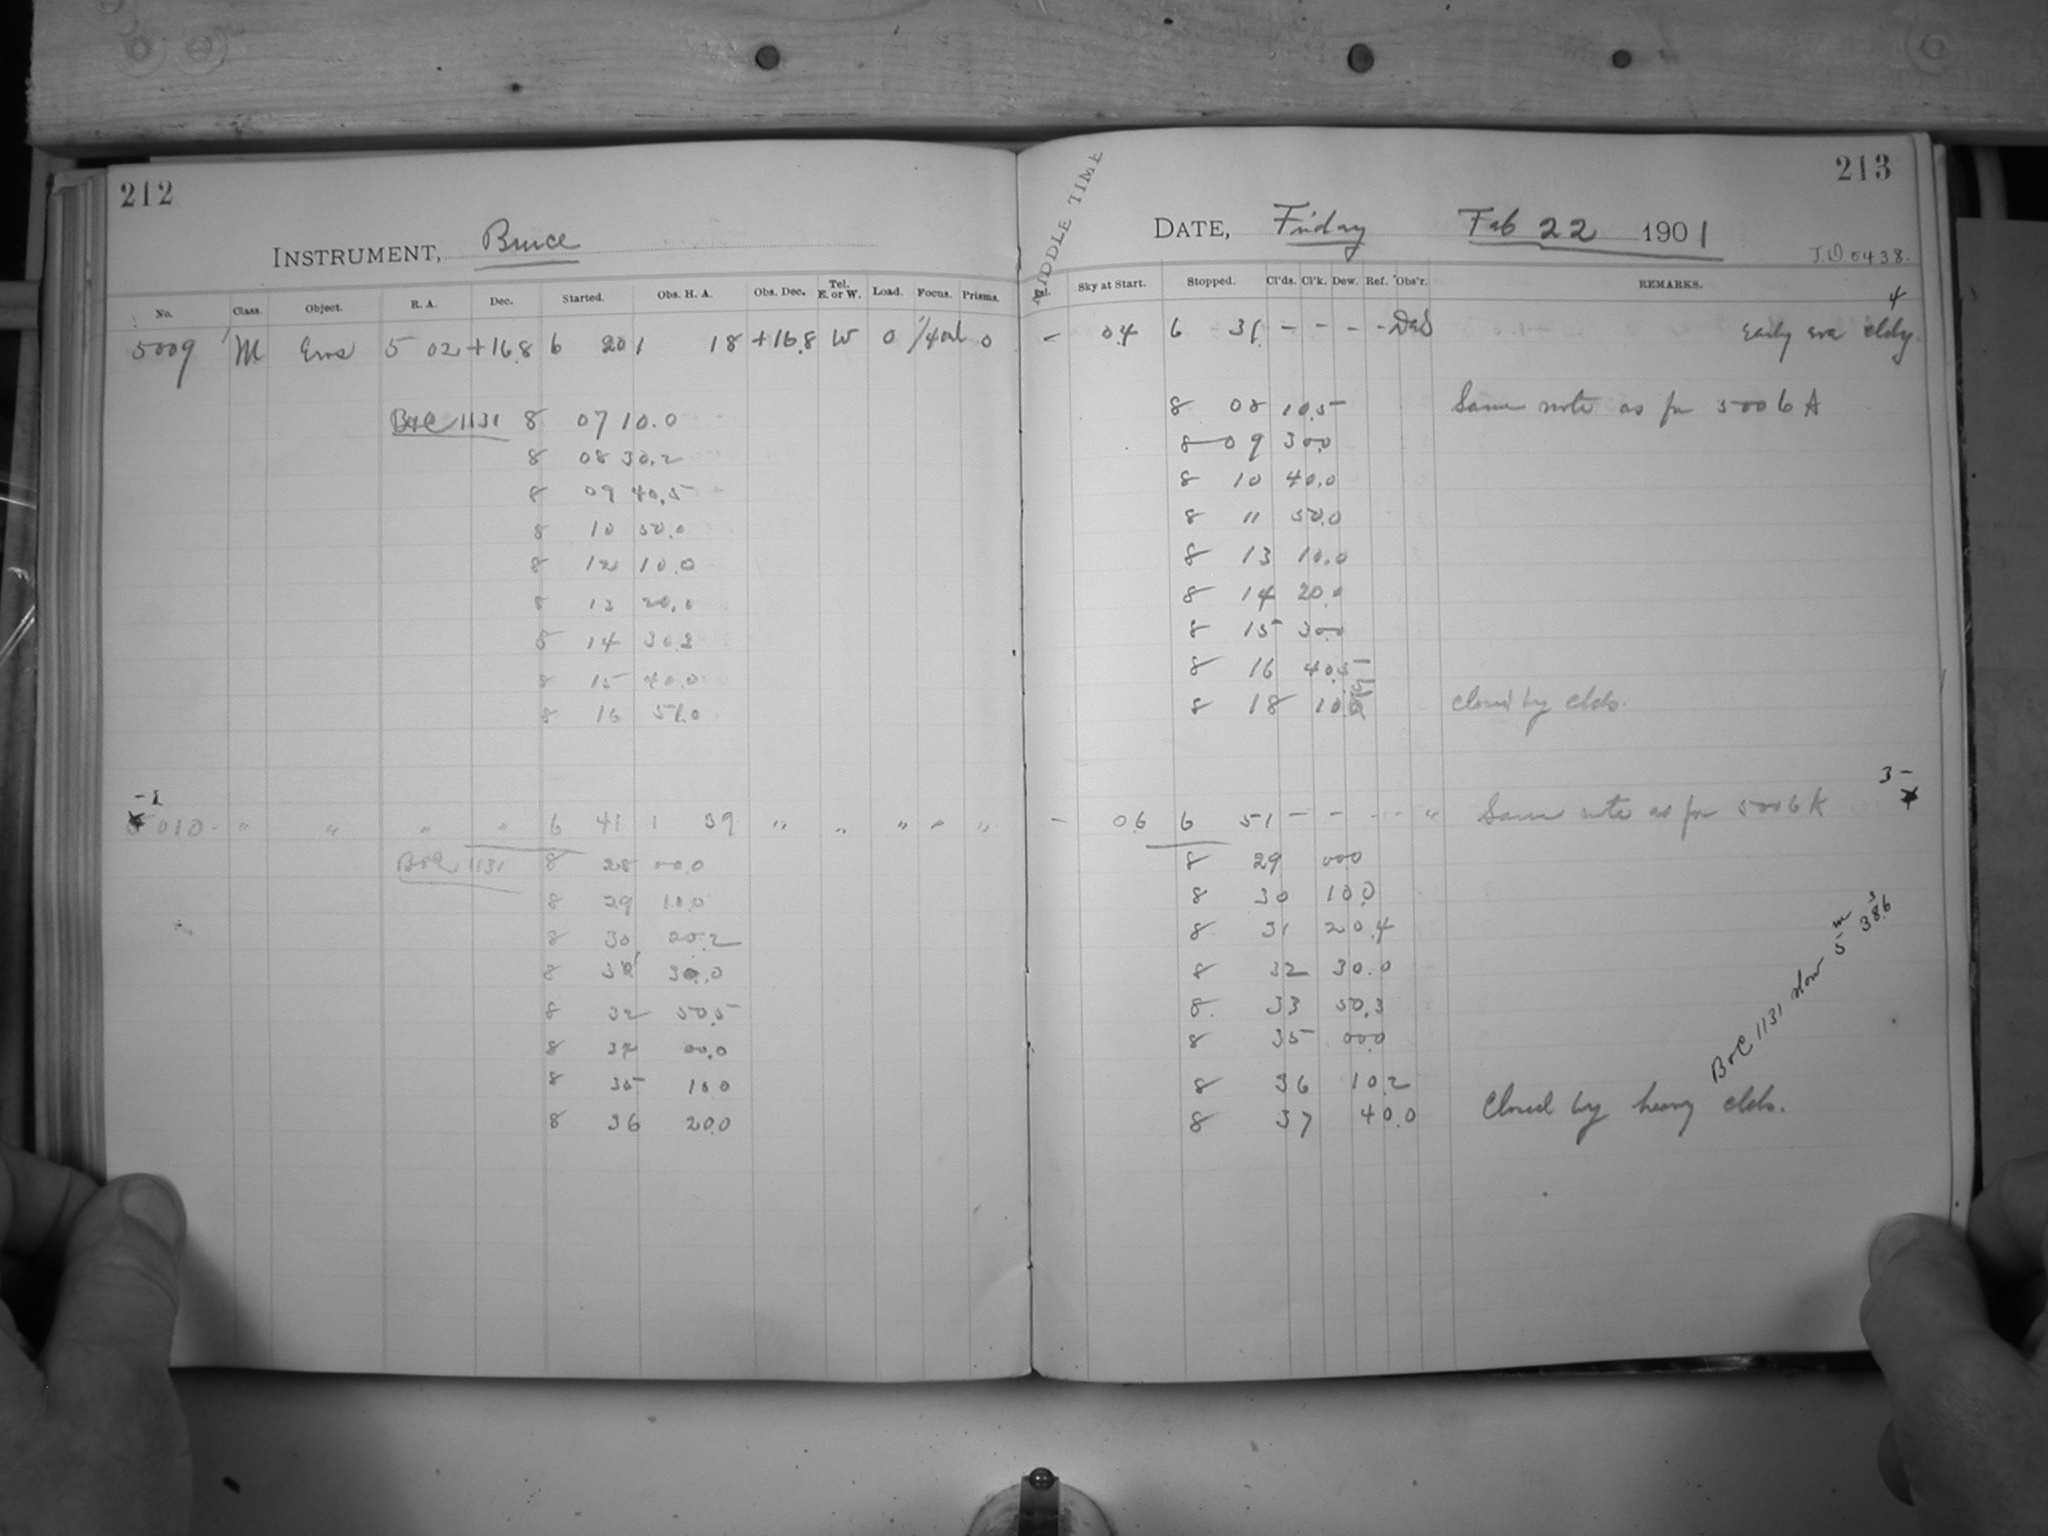 212
INSTRUMENT, Bruce
No. Class. Object. R. A. Dec. Started. Obs. H. A. Obs. Dec. Tel. E. or W. Load. Focus. Prisms.
5009 M Eros 5 02 +16.8 6 20 1 18 +16.8 W 0 0
B&C 1131 8 07 10.0
8 08 30.2
8 09 40.5
8 10 50.0
8 12 10.0
8 13 20.0
8 14 30.3
8 15 40.0
8 16 51.0
5010 " " " " 6 41 1 39 " " " " "
B&C 1131 8 28 00.0
8 29 10.0
8 30 20.2
8 31 30.0
8 32 50.5
8 34 00.0
8 35 10.0
8 36 20.0
213
MIDDLE TIME
DATE, Friday Feb 22 1901
J.D. 5438.
Sky at Start. Stopped. Cl'ds. Cl'k. Dew. Ref. Obs'r. REMARKS.
4
— 04 6 31 — — — - Early eve cldy.
8 08 10.5 Same note as for 5006 A
8 09 30.0
8 10 40.0
8 11 50.0
8 13 10.0
8 14 20.0
8 15 30.0
8 16 40.5
8 18 10 Closed by clds.
3 -
— 06 6 51 — — - - " Same note as for 5006 A
8 29 00.0
8 30 10.0
8 31 20.4
8 32 30.0
8 33 50.3
8 35 00.0
8 36 10.2
8 37 40.0 Closed by heavy clds.
B&C 1131 slow 5m 38.6s